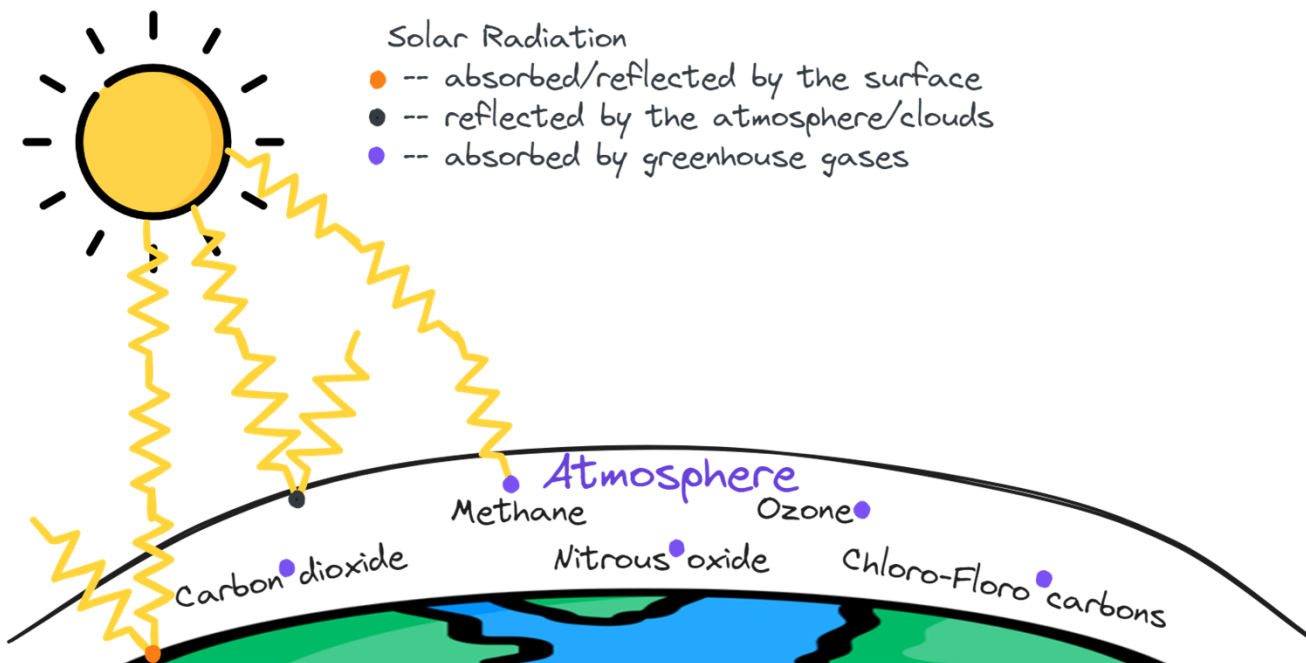 Solar Radiation
-- absorbed/reflected by the surface
-- reflected by the atmosphere/clouds
-- absorbed by greenhouse gases
Atmosphere
Methane
Ozone
Carbon dioxide
Nitrous oxide
Chloro-Floro carbons